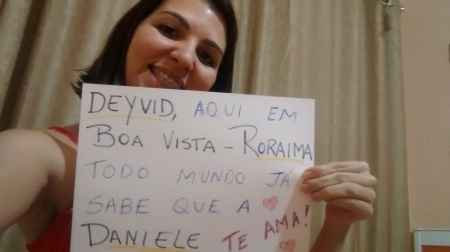 DEYVID, AQUI EM
BOA VISTA - RORAIMA
TODO MUNDO JÁ
SABE QUE A
DANIELE TE AMA!